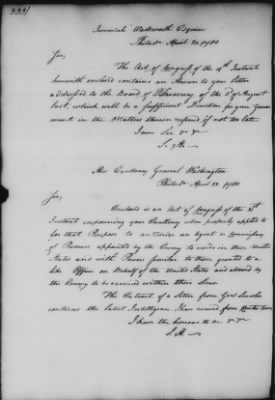 Jeremiah Wadsworth Esquire
Philada April 20 1780
Sir,
The Act of Congress of the 14th Instant
herewith enclosed contains an Answer to your Letter
addressed to the Board of Treasury of the of August
last, which will be a sufficient Direction for your Govern
ment in the Matters therein referred if not too late.
I am Sir &c &c
S. H.
His Excellency General Washington
Philada April 20 1780
Sir,
Enclosed is an Act of Congress of the
Instant empowering your Excellency when properly applied to
for that Purpose to authorize an Agent or Commissary
of Prisoners appointed by the Enemy to reside in these United
States and with Powers similar to those granted to a
like Officer on Behalf of the United States and allowed by
the Enemy to be exercised within their Lines.
The Extract of a Letter from Genl Lincoln
contains the latest Intelligence I have received from
I have the honour to be &c &c
S. H.